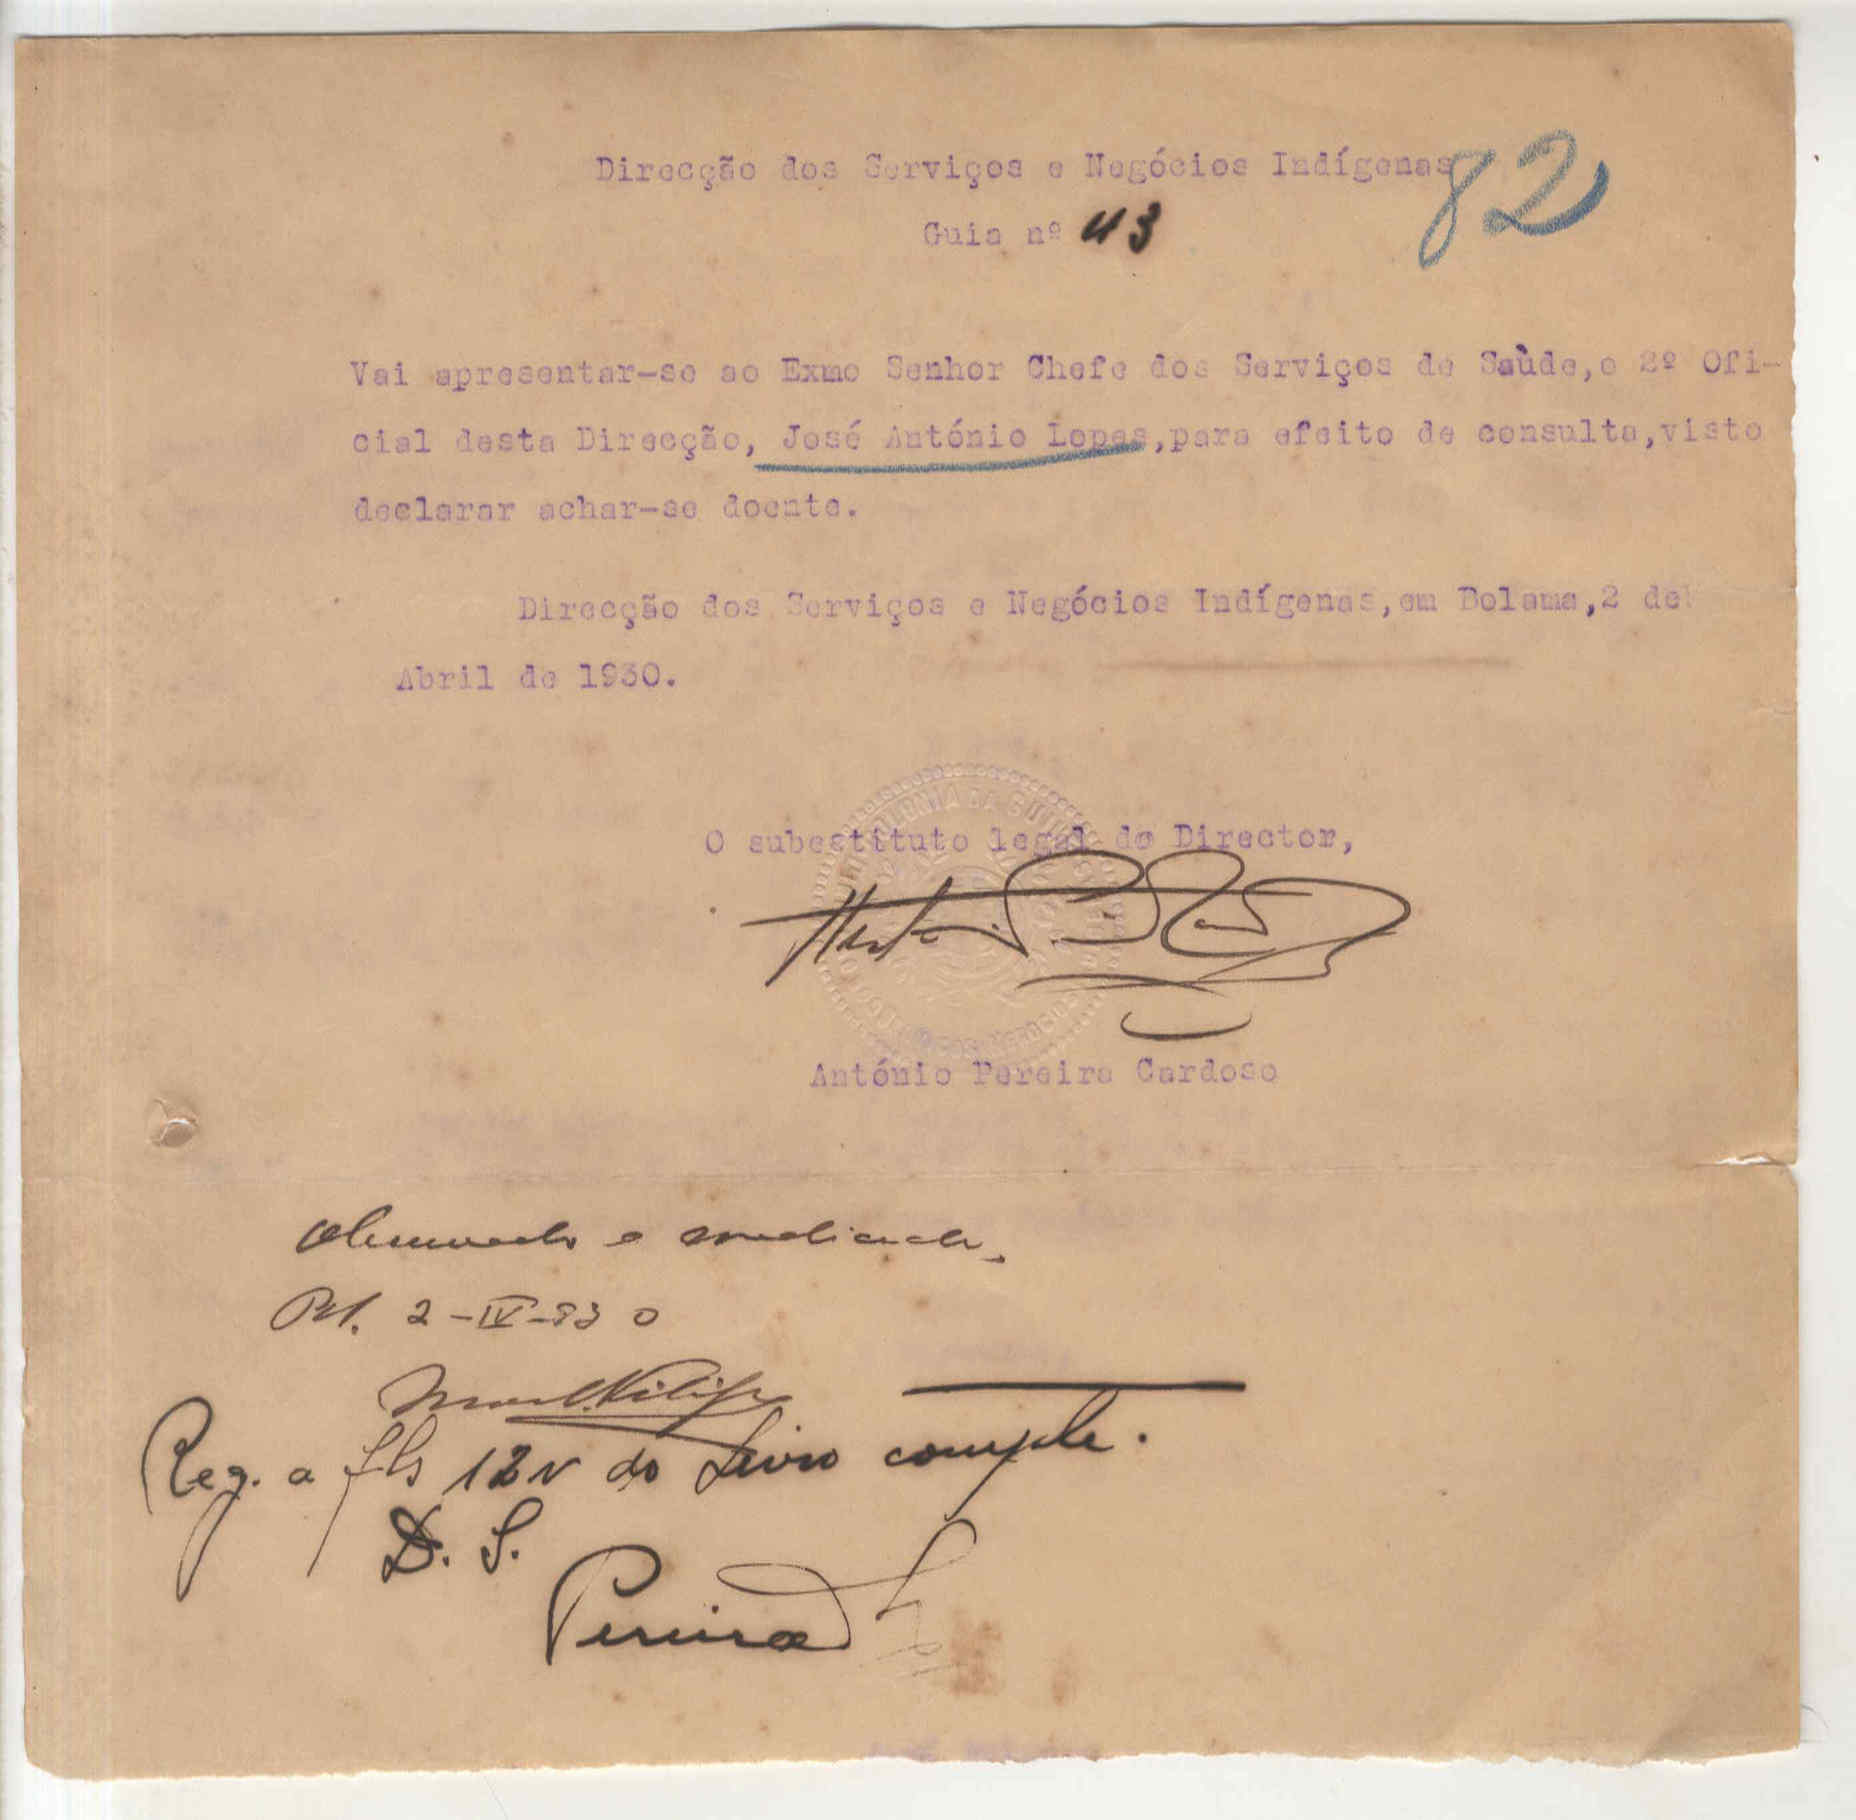 Direcção dos Serviços e Negócios Indígenas
82
Guia nº 43
Vai apresentar-se ao Exmo Senhor Chefe dos Serviços de Saùde,o 2º Ofi-
cial desta Direcção, José António Lopes,para efeito de consulta,visto
declarar achar-se doente.
Direcção dos Serviços e Negócios Indígenas,em Bolama,2 de
Abril de 1930.
O substituto legal do Director,
António Pereira Cardoso
Observado e medicado.
2-IV-930
Reg. a fls 12v do Livro comple.
D. S.
Pereira